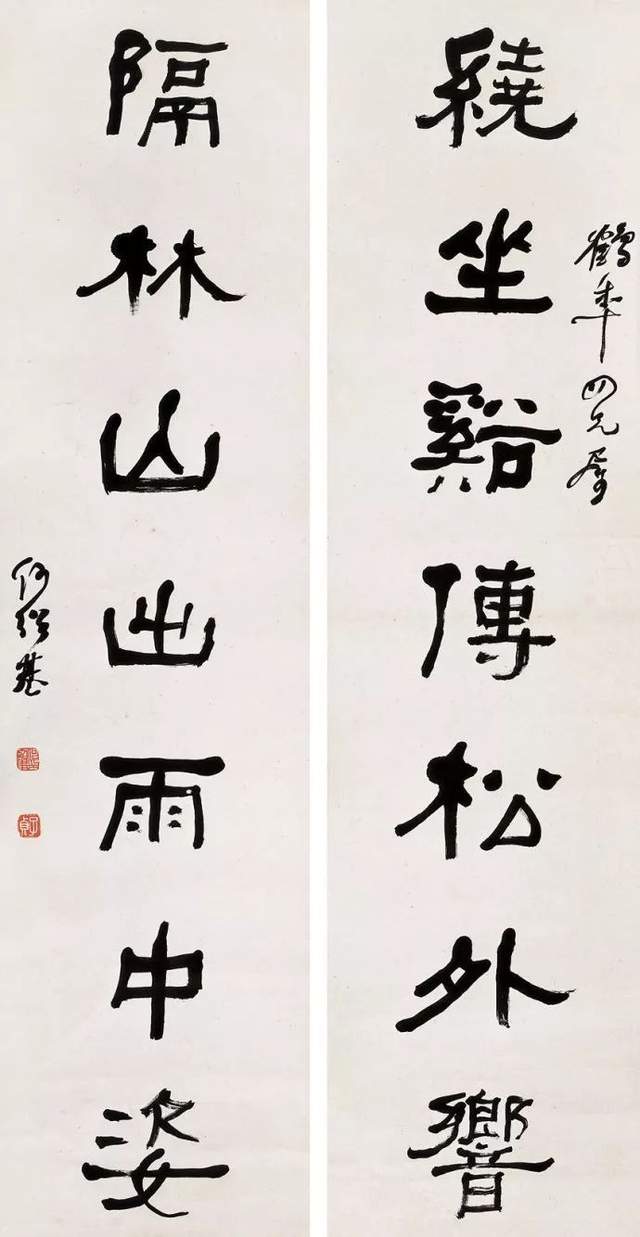 繞坐谿傳松外響
鶴年四兄屬
隔林山出雨中姿
何紹基